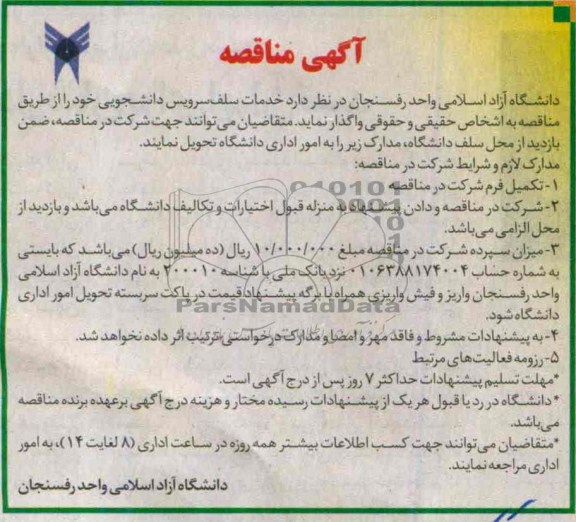 آگهی مناقصه
دانشگاه آزاد اسلامی واحد رفسنجان در نظر دارد خدمات سلف‌سرویس دانشجویی خود را از طریق
مناقصه به اشخاص حقیقی و حقوقی واگذار نماید. متقاضیان می‌توانند جهت شرکت در مناقصه، ضمن
بازدید از محل سلف دانشگاه، مدارک زیر را به امور اداری دانشگاه تحویل نمایند.
مدارک لازم و شرایط شرکت در مناقصه:
۱- تکمیل فرم شرکت در مناقصه
۲- شرکت در مناقصه و دادن پیشنهاد به منزله قبول اختیارات و تکالیف دانشگاه می‌باشد و بازدید از
محل الزامی می‌باشد.
۳- میزان سپرده شرکت در مناقصه مبلغ ۱۰/۰۰۰/۰۰۰ ریال (ده میلیون ریال) می‌باشد که بایستی
به شماره حساب ۰۱۰۶۳۸۸۱۷۴۰۰۴ نزد بانک ملی با شناسه ۲۰۰۰۱۰ به نام دانشگاه آزاد اسلامی
واحد رفسنجان واریز و فیش واریزی همراه با برگه پیشنهاد قیمت در پاکت سربسته تحویل امور اداری
دانشگاه شود.
ParsNamadData
۴- به پیشنهادات مشروط و فاقد مهر و امضا و مدارک درخواستی ترتیب اثر داده نخواهد شد.
۵- رزومه فعالیت‌های مرتبط
*مهلت تسلیم پیشنهادات حداکثر ۷ روز پس از درج آگهی است.
*دانشگاه در رد یا قبول هر یک از پیشنهادات رسیده مختار و هزینه درج آگهی برعهده برنده مناقصه
می‌باشد.
*متقاضیان می‌توانند جهت کسب اطلاعات بیشتر همه روزه در ساعت اداری (۸ لغایت ۱۴)، به امور
اداری مراجعه نمایند.
دانشگاه آزاد اسلامی واحد رفسنجان